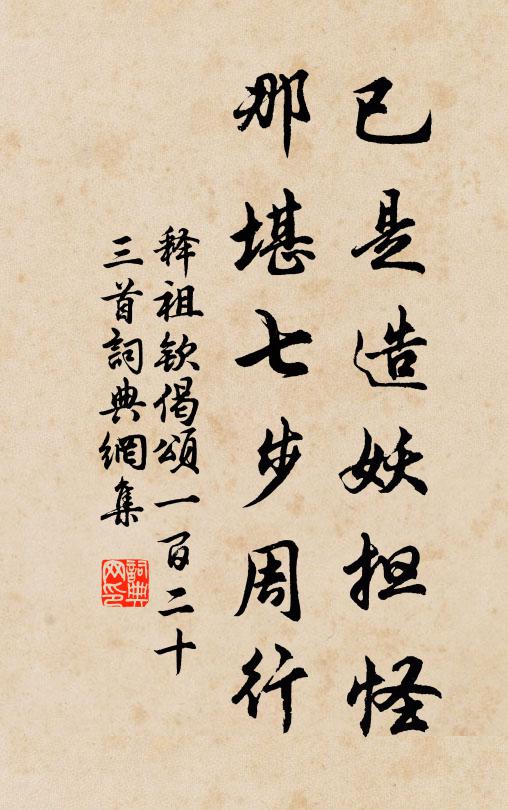 已是造妖担怪
那堪七步周行
释祖钦偈頌一百二十
三首詞典網集
詞典
网印